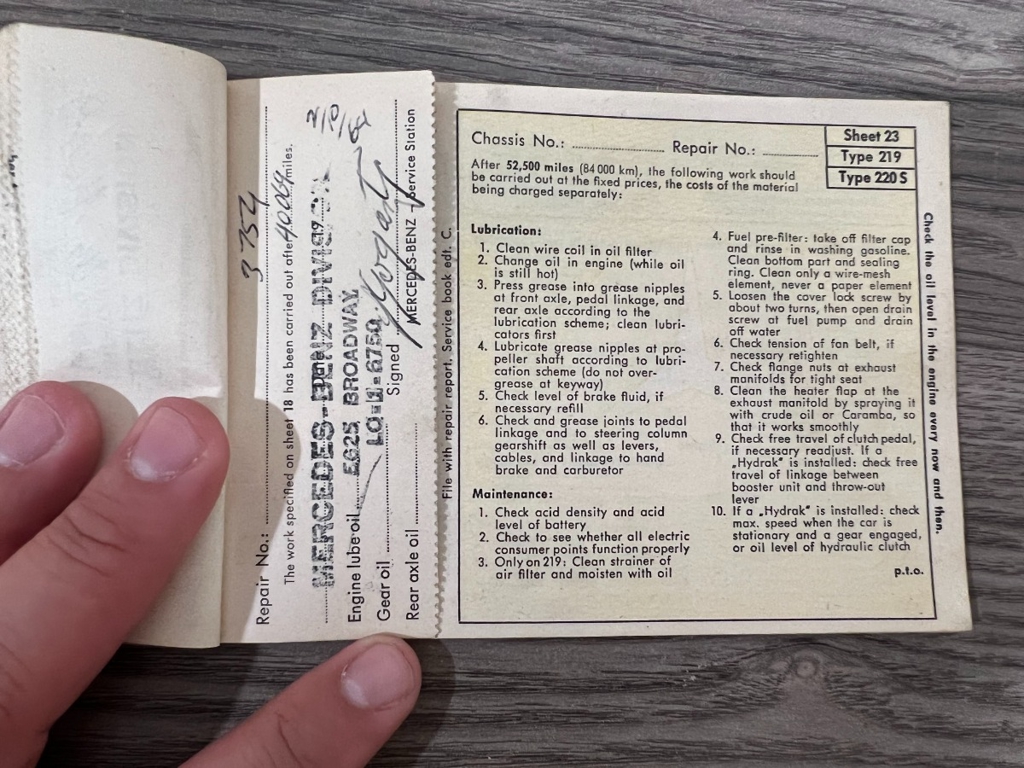 Repair No.: 3 754
The work specified on sheet 18 has been carried out after 40064 miles.
MERCEDES-BENZ DIVISION
2/10/64
Engine lube oil E625 BROADWAY,
Gear oil LO.:1-6750,
Signed
Rear axle oil MERCEDES-BENZ - Service Station
File with repair report. Service book edt. C.
Chassis No.: Repair No.:
Sheet 23
Type 219
Type 220 S
After 52,500 miles (84 000 km), the following work should
be carried out at the fixed prices, the costs of the material
being charged separately:
Lubrication:
1. Clean wire coil in oil filter
2. Change oil in engine (while oil
is still hot)
3. Press grease into grease nipples
at front axle, pedal linkage, and
rear axle according to the
lubrication scheme; clean lubri-
cators first
4. Lubricate grease nipples at pro-
peller shaft according to lubri-
cation scheme (do not over-
grease at keyway)
5. Check level of brake fluid, if
necessary refill
6. Check and grease joints to pedal
linkage and to steering column
gearshift as well as levers,
cables, and linkage to hand
brake and carburetor
Maintenance:
1. Check acid density and acid
level of battery
2. Check to see whether all electric
consumer points function properly
3. Only on 219: Clean strainer of
air filter and moisten with oil
4. Fuel pre-filter: take off filter cap
and rinse in washing gasoline.
Clean bottom part and sealing
ring. Clean only a wire-mesh
element, never a paper element
5. Loosen the cover lock screw by
about two turns, then open drain
screw at fuel pump and drain
off water
6. Check tension of fan belt, if
necessary retighten
7. Check flange nuts at exhaust
manifolds for tight seat
8. Clean the heater flap at the
exhaust manifold by spraying it
with crude oil or Caramba, so
that it works smoothly
9. Check free travel of clutch pedal,
if necessary readjust. If a
„Hydrak" is installed: check free
travel of linkage between
booster unit and throw-out
lever
10. If a „Hydrak" is installed: check
max. speed when the car is
stationary and a gear engaged,
or oil level of hydraulic clutch
p.t.o.
Check the oil level in the engine every now and then.